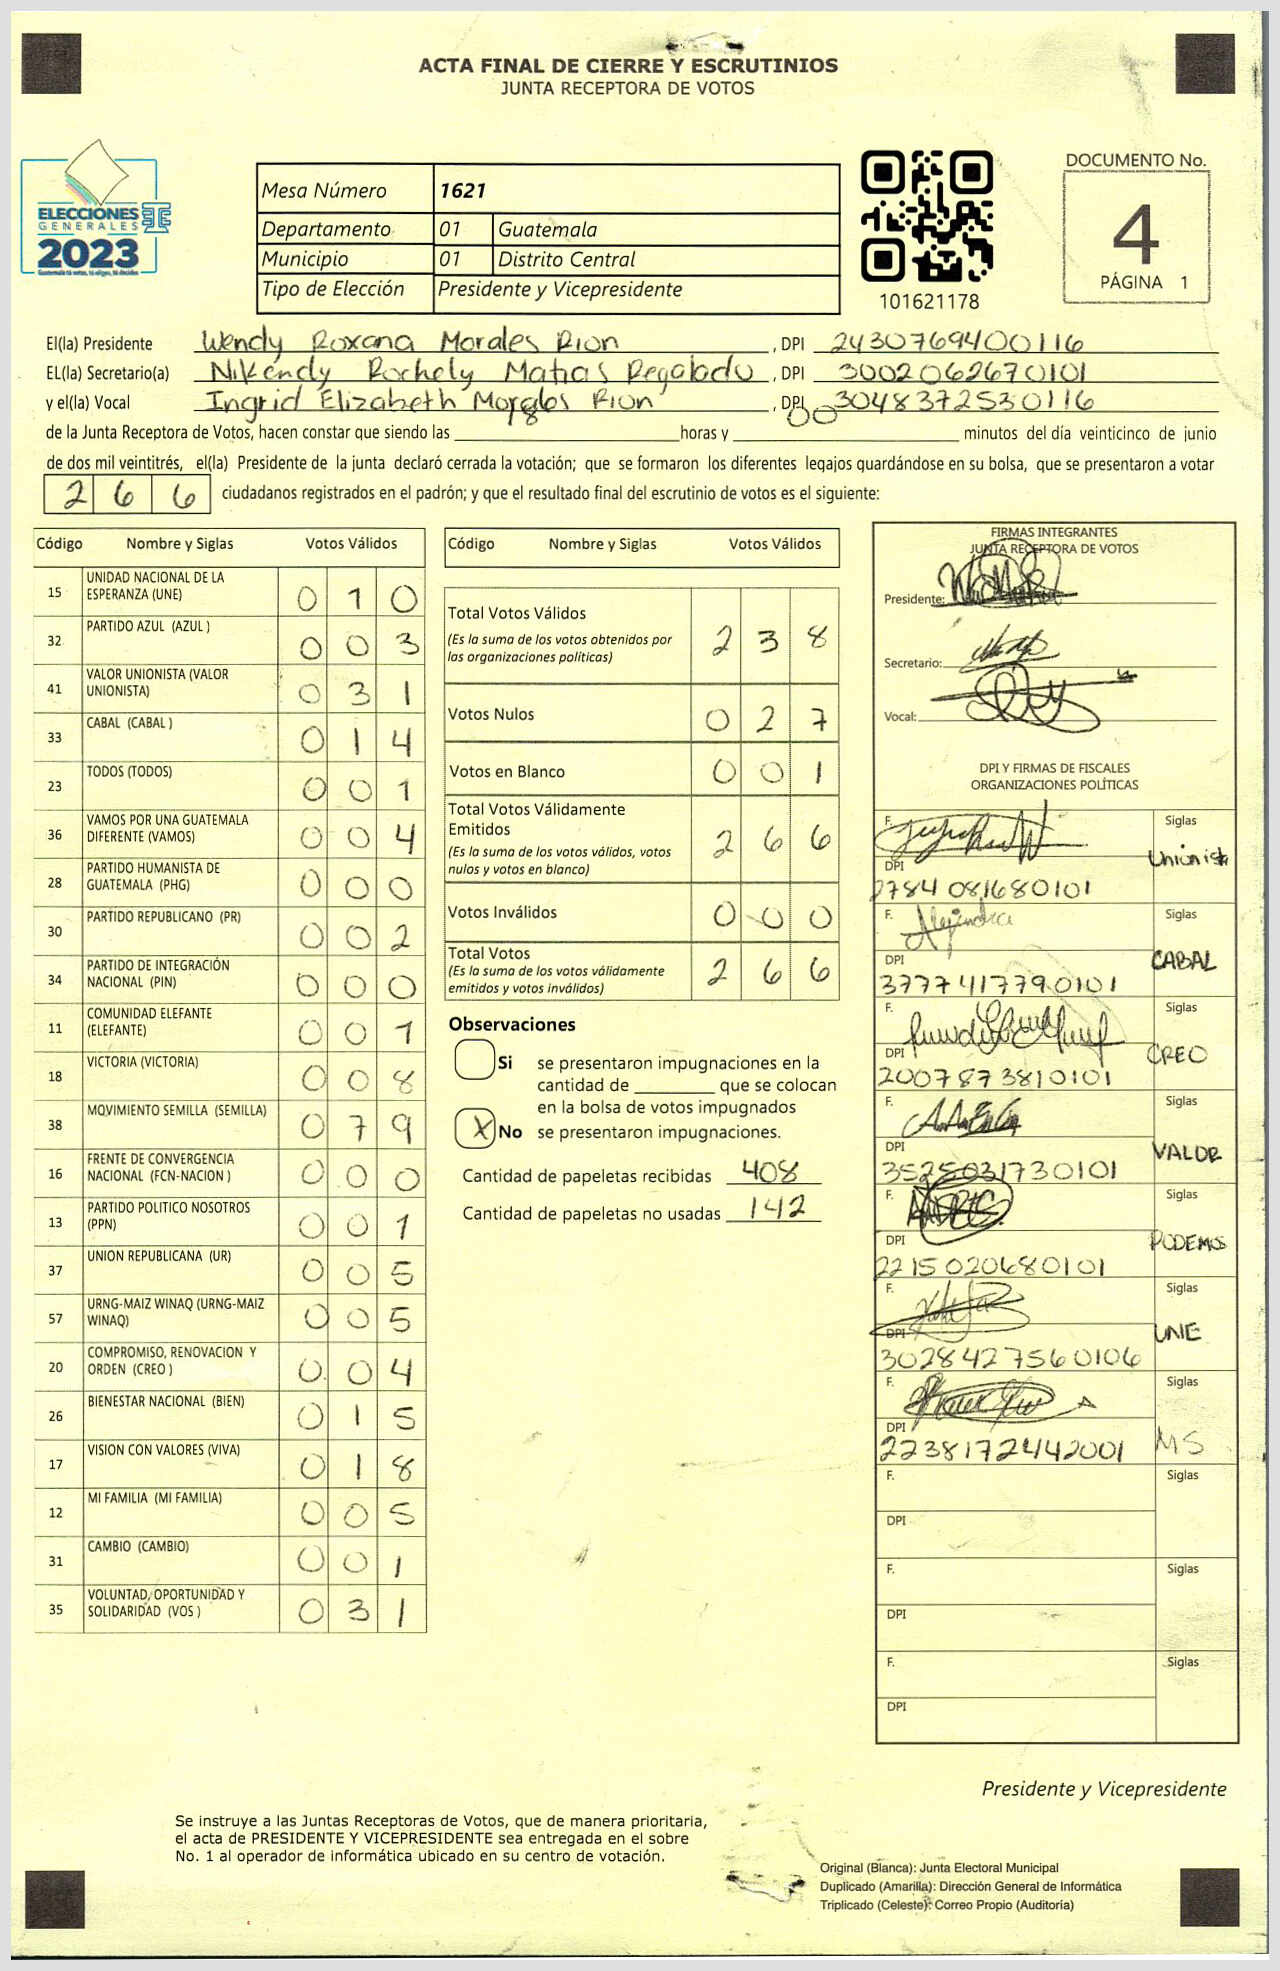 ACTA FINAL DE CIERRE Y ESCRUTINIOS
JUNTA RECEPTORA DE VOTOS
ELECCIONES
GENERALES
2023
Guatemala tú votas, tú eliges, tú decides
Mesa Número 1621
Departamento 01 Guatemala
Municipio 01 Distrito Central
Tipo de Elección Presidente y Vicepresidente
101621178
DOCUMENTO No.
4
PÁGINA 1
El(la) Presidente Wendy Roxana Morales Rion, DPI 2430769400116
EL(la) Secretario(a) Nikendy Rochely Matias Regalado, DPI 3002062670101
y el(la) Vocal Ingrid Elizabeth Morales Rion, DPI 3048372530116
de la Junta Receptora de Votos, hacen constar que siendo las 18 horas y 00 minutos del día veinticinco de junio
de dos mil veintitrés, el(la) Presidente de la junta declaró cerrada la votación; que se formaron los diferentes legajos guardándose en su bolsa, que se presentaron a votar
266 ciudadanos registrados en el padrón; y que el resultado final del escrutinio de votos es el siguiente:
Código Nombre y Siglas Votos Válidos
15 UNIDAD NACIONAL DE LA ESPERANZA (UNE) 0 1 0
32 PARTIDO AZUL (AZUL ) 0 0 3
41 VALOR UNIONISTA (VALOR UNIONISTA) 0 3 1
33 CABAL (CABAL ) 0 1 4
23 TODOS (TODOS) 0 0 1
36 VAMOS POR UNA GUATEMALA DIFERENTE (VAMOS) 0 0 4
28 PARTIDO HUMANISTA DE GUATEMALA (PHG) 0 0 0
30 PARTIDO REPUBLICANO (PR) 0 0 2
34 PARTIDO DE INTEGRACIÓN NACIONAL (PIN) 0 0 0
11 COMUNIDAD ELEFANTE (ELEFANTE) 0 0 1
18 VICTORIA (VICTORIA) 0 0 8
38 MOVIMIENTO SEMILLA (SEMILLA) 0 7 9
16 FRENTE DE CONVERGENCIA NACIONAL (FCN-NACION ) 0 0 0
13 PARTIDO POLITICO NOSOTROS (PPN) 0 0 1
37 UNION REPUBLICANA (UR) 0 0 5
57 URNG-MAIZ WINAQ (URNG-MAIZ WINAQ) 0 0 5
20 COMPROMISO, RENOVACION Y ORDEN (CREO ) 0 0 4
26 BIENESTAR NACIONAL (BIEN) 0 1 5
17 VISION CON VALORES (VIVA) 0 1 8
12 MI FAMILIA (MI FAMILIA) 0 0 5
31 CAMBIO (CAMBIO) 0 0 1
35 VOLUNTAD, OPORTUNIDAD Y SOLIDARIDAD (VOS ) 0 3 1
Código Nombre y Siglas Votos Válidos
Total Votos Válidos 2 3 8
(Es la suma de los votos obtenidos por
las organizaciones políticas)
Votos Nulos 0 2 7
Votos en Blanco 0 0 1
Total Votos Válidamente
Emitidos 2 6 6
(Es la suma de los votos válidos, votos
nulos y votos en blanco)
Votos Inválidos 0 0 0
Total Votos 2 6 6
(Es la suma de los votos válidamente
emitidos y votos inválidos)
Observaciones
Si se presentaron impugnaciones en la
cantidad de ________ que se colocan
en la bolsa de votos impugnados
X No se presentaron impugnaciones.
Cantidad de papeletas recibidas 408
Cantidad de papeletas no usadas 142
FIRMAS INTEGRANTES
JUNTA RECEPTORA DE VOTOS
Presidente:
Secretario:
Vocal:
DPI Y FIRMAS DE FISCALES
ORGANIZACIONES POLÍTICAS
F. Siglas
DPI Unionista
2784081680101
F. Alejandra Siglas
DPI CABAL
3777417790101
F. Siglas
DPI CREO
2007873810101
F. Siglas
DPI VALOR
3525031730101
F. Siglas
DPI PODEMOS
2215020680101
F. Siglas
DPI UNE
3028427560106
F. Siglas
DPI MS
2238172442001
F. Siglas
DPI
F. Siglas
DPI
F. Siglas
DPI
Presidente y Vicepresidente
Se instruye a las Juntas Receptoras de Votos, que de manera prioritaria,
el acta de PRESIDENTE Y VICEPRESIDENTE sea entregada en el sobre
No. 1 al operador de informática ubicado en su centro de votación.
Original (Blanca): Junta Electoral Municipal
Duplicado (Amarilla): Dirección General de Informática
Triplicado (Celeste): Correo Propio (Auditoría)